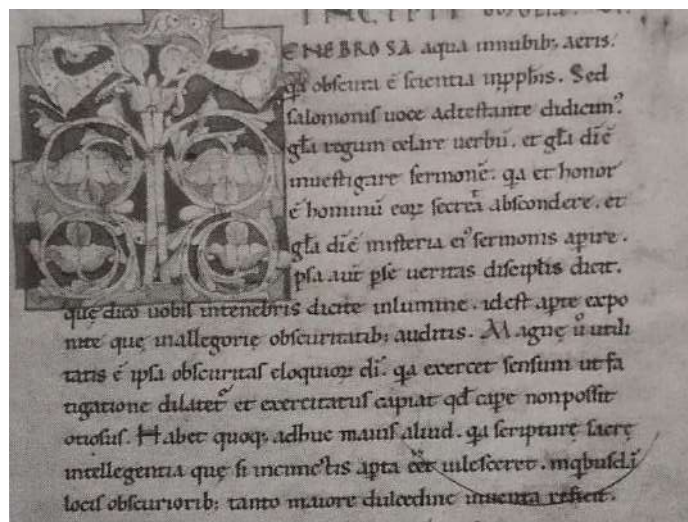 TENEBROSA aqua innubib; aeris.
q̄a obscura ē scientia inpphīs. Sed
salomonis uoce adtestante didicim᾽
gl̄a regum celare uerbū. et gl̄a dīē
inuestigare sermonē. q̄a et honor
ē hominū eoꝝ secrēa abscondere. et
gl̄a dīē misteria ei᾽ sermonis apire.
Ipsa aut̄ pse ueritas discipl̄is dicit.
quę dico uobis intenebris dicite inlumine. idest apte expo
nite quę inallegorię obscuritatib; auditis. Magnę u᾽ utili
tatis ē ipsa obscuritas eloquioꝝ dī. q̄a exercet sensum ut fa
tigatione dilatet᾽ et exercitatus capiat qd̄ cape nonpossit
otiosus. Habet quoq; adhuc maius aliud. q̄a scripturę sacrę
intellegentia quę si incunctis apta eēt uilesceret. inqbusdā
locis obscuriorib; tanto maiore dulcedine inuenta reficit.